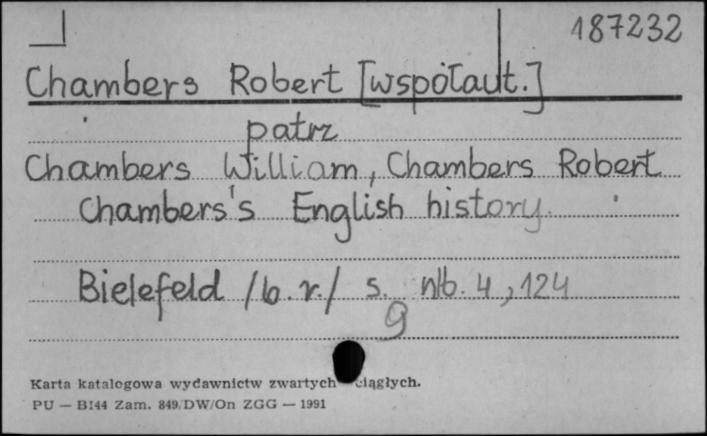 187232
Chambers Robert [współaut.]
patrz
Chambers William, Chambers Robert
Chambers's English history.
Bielefeld /b.r./ s. nlb. 4, 124
g
Karta katalogowa wydawnictw zwartych ciągłych.
PU — B144 Zam. 849/DW/On ZGG — 1991